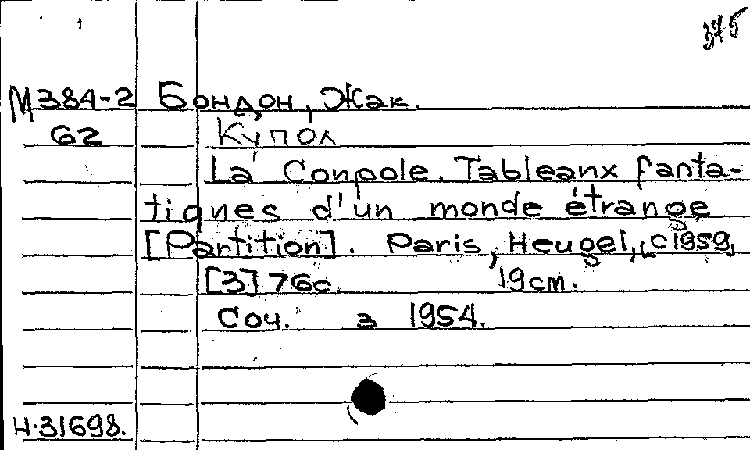 345
М384-2 Бондон, Жак.
62 Купол
La Conpole. Tableanx fanta-
tiqnes d'un monde étrange
[Partition]. Paris, Heugel, c1959,
[3] 76c. 19cm.
Соч. в 1954.
Н.31698.